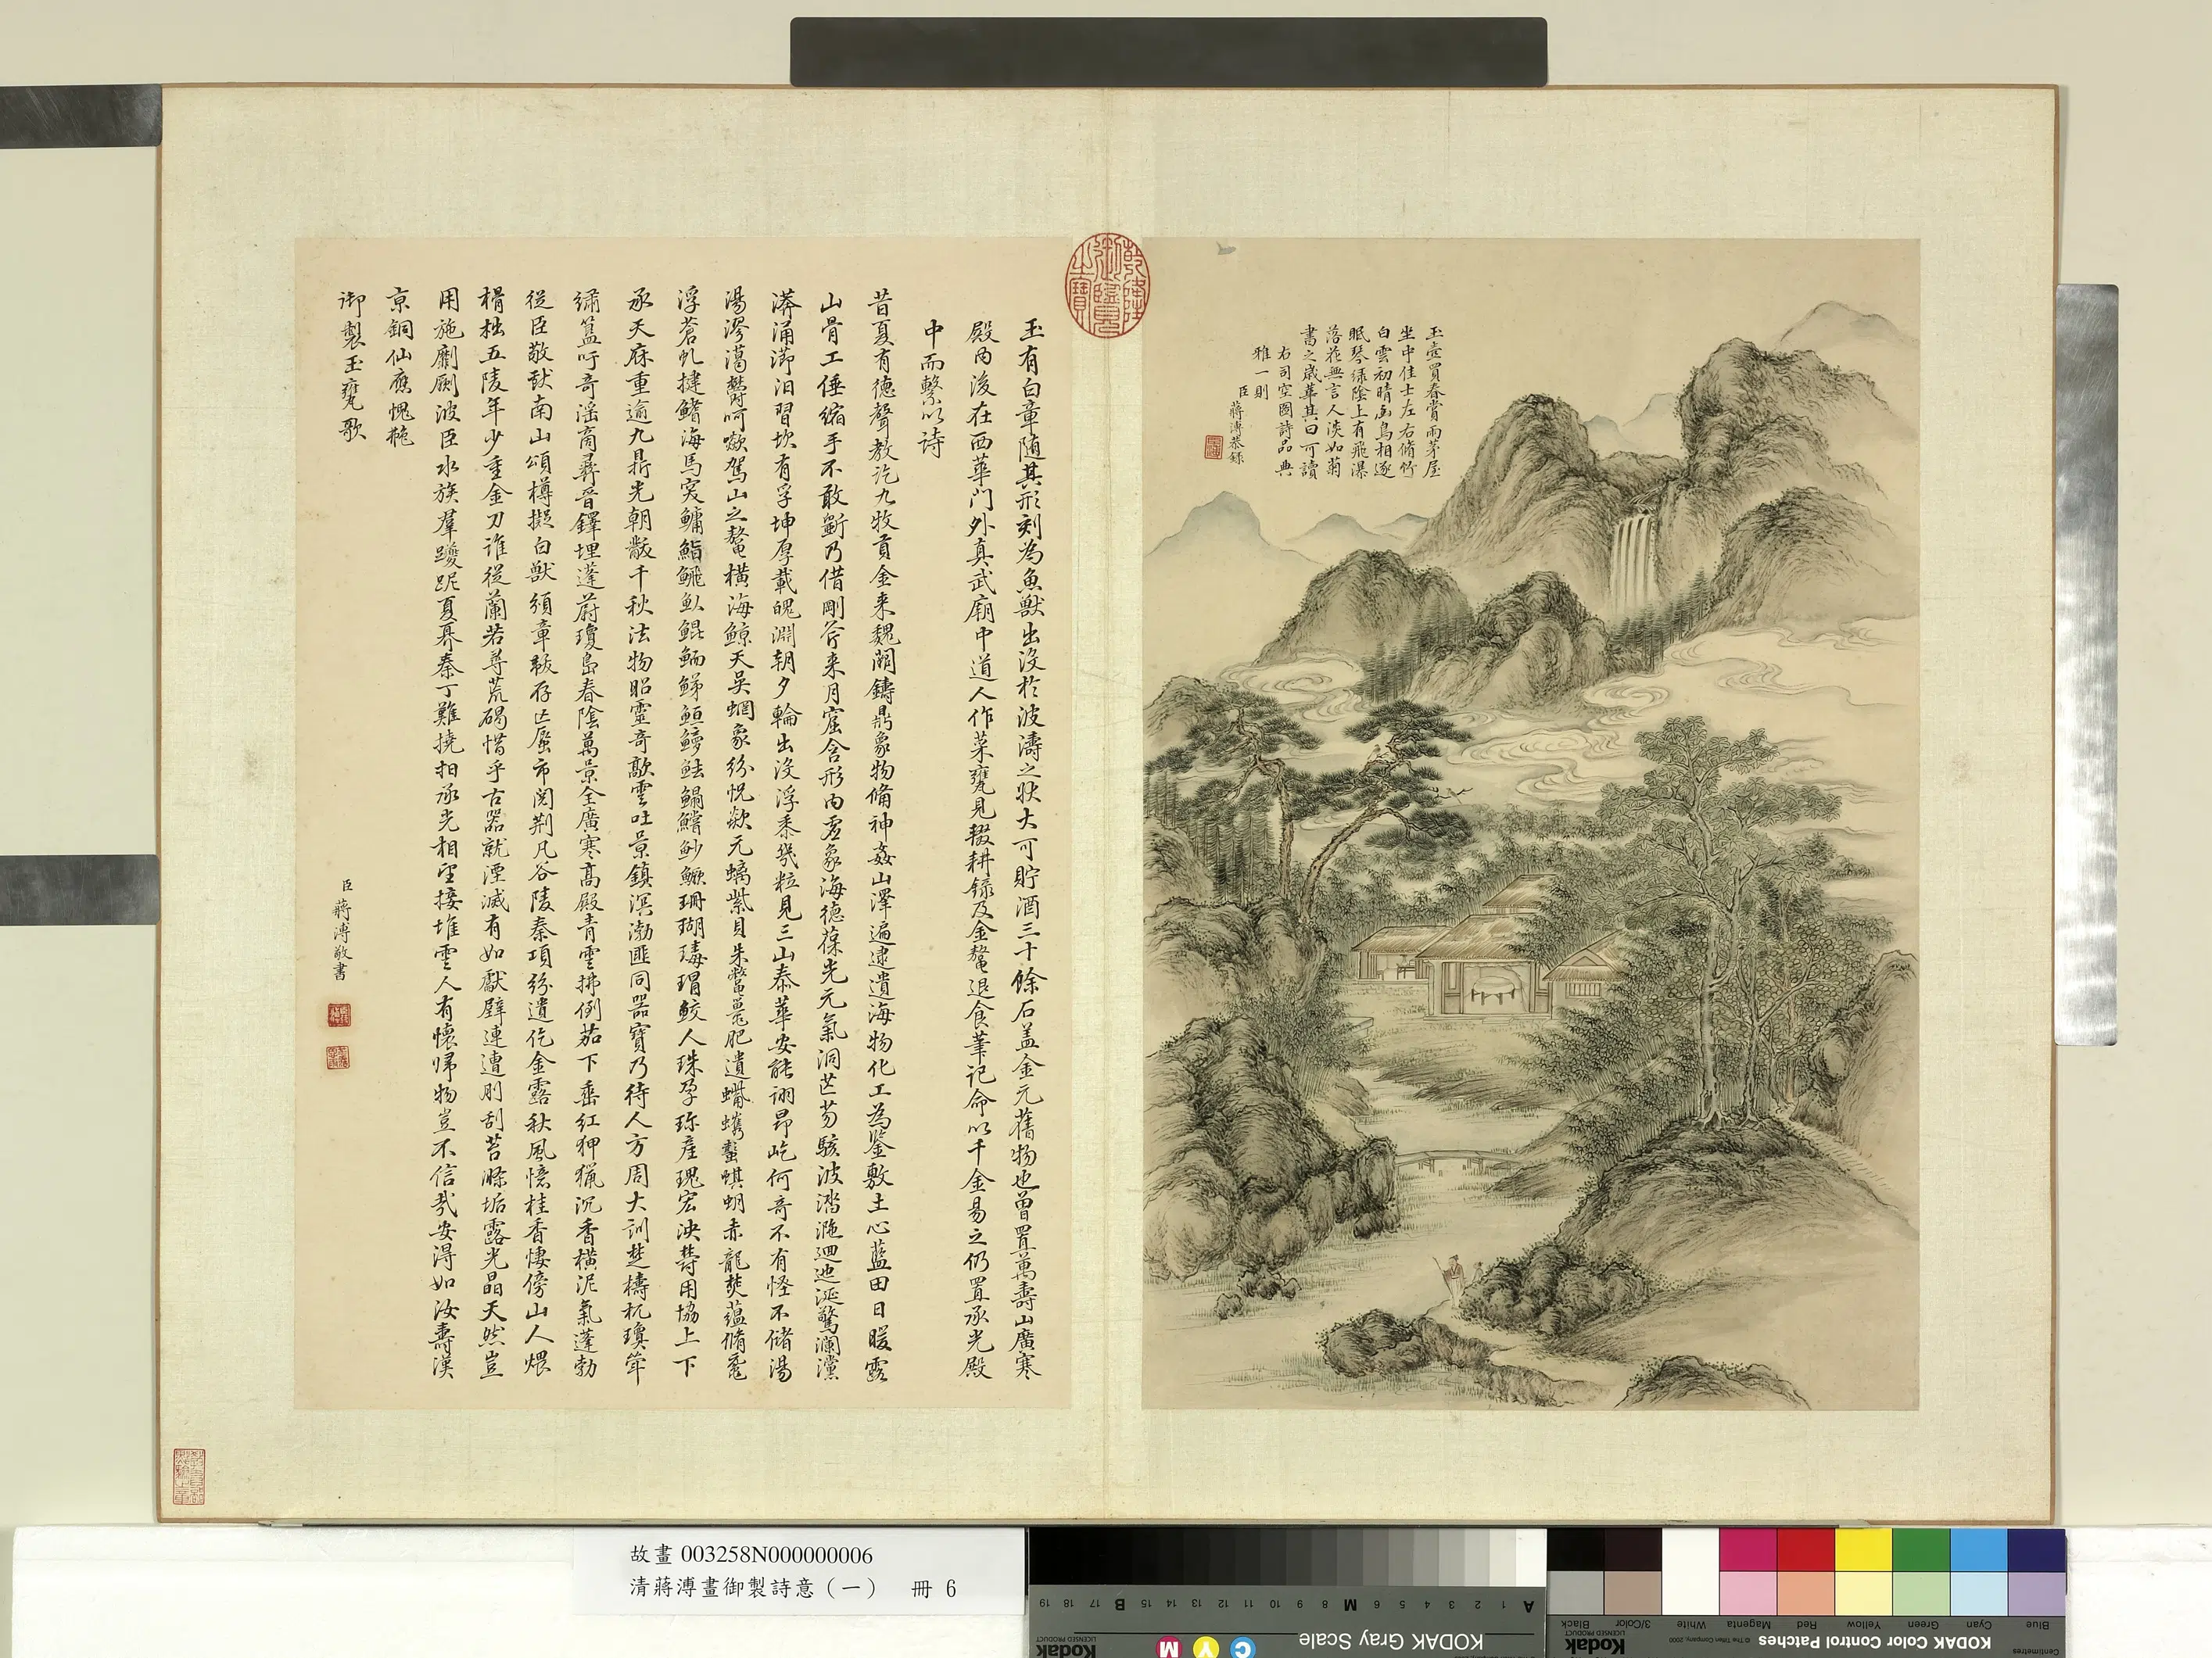 玉壺買春賞雨茅屋
坐中佳士左右脩竹
白雲初晴幽鳥相逐
眠琴綠陰上有飛瀑
落花無言人淡如菊
書之歲華其曰可讀
右司空圖詩品典
雅一則
臣蔣溥恭錄
乾隆御覽之寶
玉有白章隨其形刻為魚獸出沒於波濤之狀大可貯酒三十餘石蓋金元舊物也曾置萬壽山廣寒
殿內後在西華門外真武廟中道人作菜甕見輟耕錄及金鰲退食筆記命以千金易之仍置承光殿
中而繫以詩
昔夏有德聲教訖九牧貢金來魏闕鑄鼎象物備神姦山澤遍逮遺海物化工為鑒敷土心藍田日暖露
山骨工倕縮手不敢斲乃借剛斧来月窟含形內虛象海德葆光元氣洞芒芴駭波濌灔迴迆涎驚瀾灙
漭涌㵽汨習坎有孚坤厚載魄淵朝夕輪出沒浮黍幾粒見三山泰華安能詡昂屹何奇不有怪不儲湯
湯漻㵧鬱呵歘駕山之鰲橫海鯨天吳蝄象紛恍歘元螭紫貝朱鷩鼉肥遺
浮蒼虬揵鰭海馬
承天庥重逾九鼎光朝黻千秋法物昭靈奇歊雲吐景鎮溟渤匪同器寶乃待人方周大訓楚檮杌瓊筝
繡簋吁奇淫商彝晉鐸埋蓬蔚瓊島春陰萬景全廣寒高殿青雲拂倒茄下垂紅狎獵沉香橫泥氣蓬勃
從臣敬獻南山頌樽擬白獸須章黻存亡蜃市閱荊凡谷陵秦項紛遺仡金露秋風憶桂香悽傍山人煨
榾柮五陵年少重金刀誰從蘭若尊荒碣惜乎古器就湮滅有如獻璧連遭刖刮苔滌垢露光晶天然豈
用施劘劂波臣水族羣躨跜夏彝秦丁難撓抇承光相望接堆雲人有懷歸物豈不信哉安得如汝壽漢
京銅仙應愧
御製玉甕歌
臣蔣溥敬書
故畫 003258N000000006
清蔣溥畫御製詩意（一） 冊 6
KODAK Gray Scale
Kodak
LICENSED PRODUCT
A 1 2 3 4 5 6 M 8 9 10 11 12 13 14 15 B 17 18 19
C Y M
KODAK Color Control Patches
© The Tiffen Company, 2000
Kodak
LICENSED PRODUCT
Centimetres
Blue Cyan Green Yellow Red Magenta White 3/Color Black